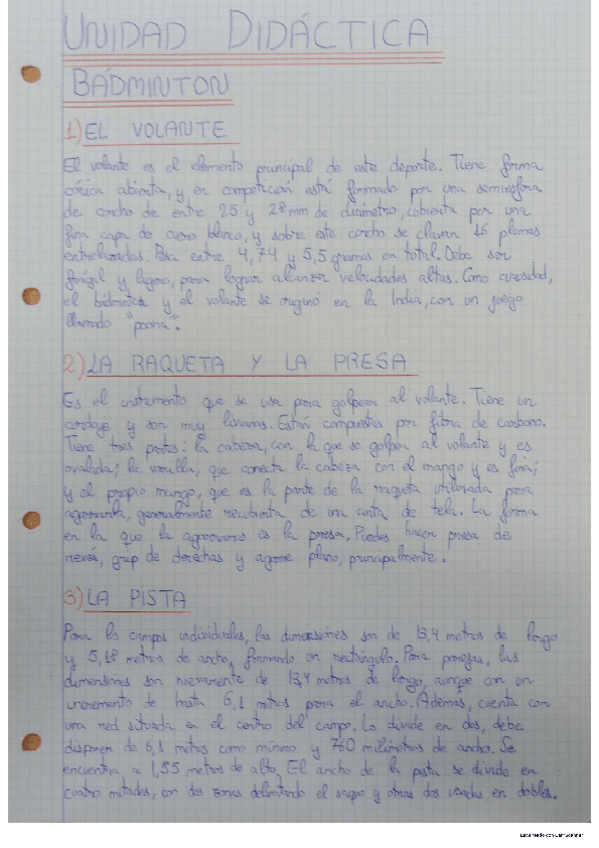 UNIDAD DIDÁCTICA
BÁDMINTON
1) EL VOLANTE
El volante es el elemento principal de este deporte. Tiene forma
cónica abierta, y en competición está formado por una semiesfera
de corcho de entre 25 y 28 mm de diámetro, cubierta por una
fina capa de cuero blanco, y sobre este corcho se clavan 16 plumas
entrelazadas. Pesa entre 4,74 y 5,5 gramos en total. Debe ser
frágil y ligero, para lograr alcanzar velocidades altas. Como curiosidad,
el bádminton y el volante se originó en la India, con un juego
llamado "poona".
2) LA RAQUETA Y LA PRESA
Es el instrumento que se usa para golpear al volante. Tiene un
cordaje y son muy livianas. Están compuestas por fibra de carbono.
Tiene tres partes: la cabeza, con la que se golpea al volante y es
ovalada; la varilla, que conecta la cabeza con el mango y es fina;
y el propio mango, que es la parte de la raqueta utilizada para
agarrarla, generalmente recubierta de una cinta de tela. La forma
en la que la agarramos es la presa. Puedes hacer presa de
revés, grip de derechas y agarre plano, principalmente.
3) LA PISTA
Para los campos individuales, las dimensiones son de 13,4 metros de largo
y 5,18 metros de ancho, formando un rectángulo. Para parejas, las
dimensiones son nuevamente de 13,4 metros de largo, aunque con un
incremento de hasta 6,1 metros para el ancho. Además, cuenta con
una red situada en el centro del campo. Lo divide en dos, debe
disponer de 6,1 metros como mínimo y 760 milímetros de ancho. Se
encuentra a 1,55 metros de alto. El ancho de la pista se divide en
cuatro mitades, con dos zonas delimitando el saque y otras dos usadas en dobles.